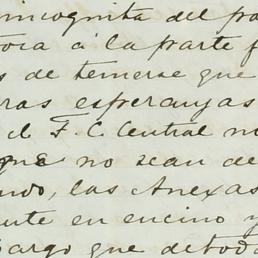 incognita del pa
toca á la parte f
s de temerse que
ras esperanyas
el F. C. Central n
que no sean de
ndo, las Anexas
nte en encino y
bargo que detoda